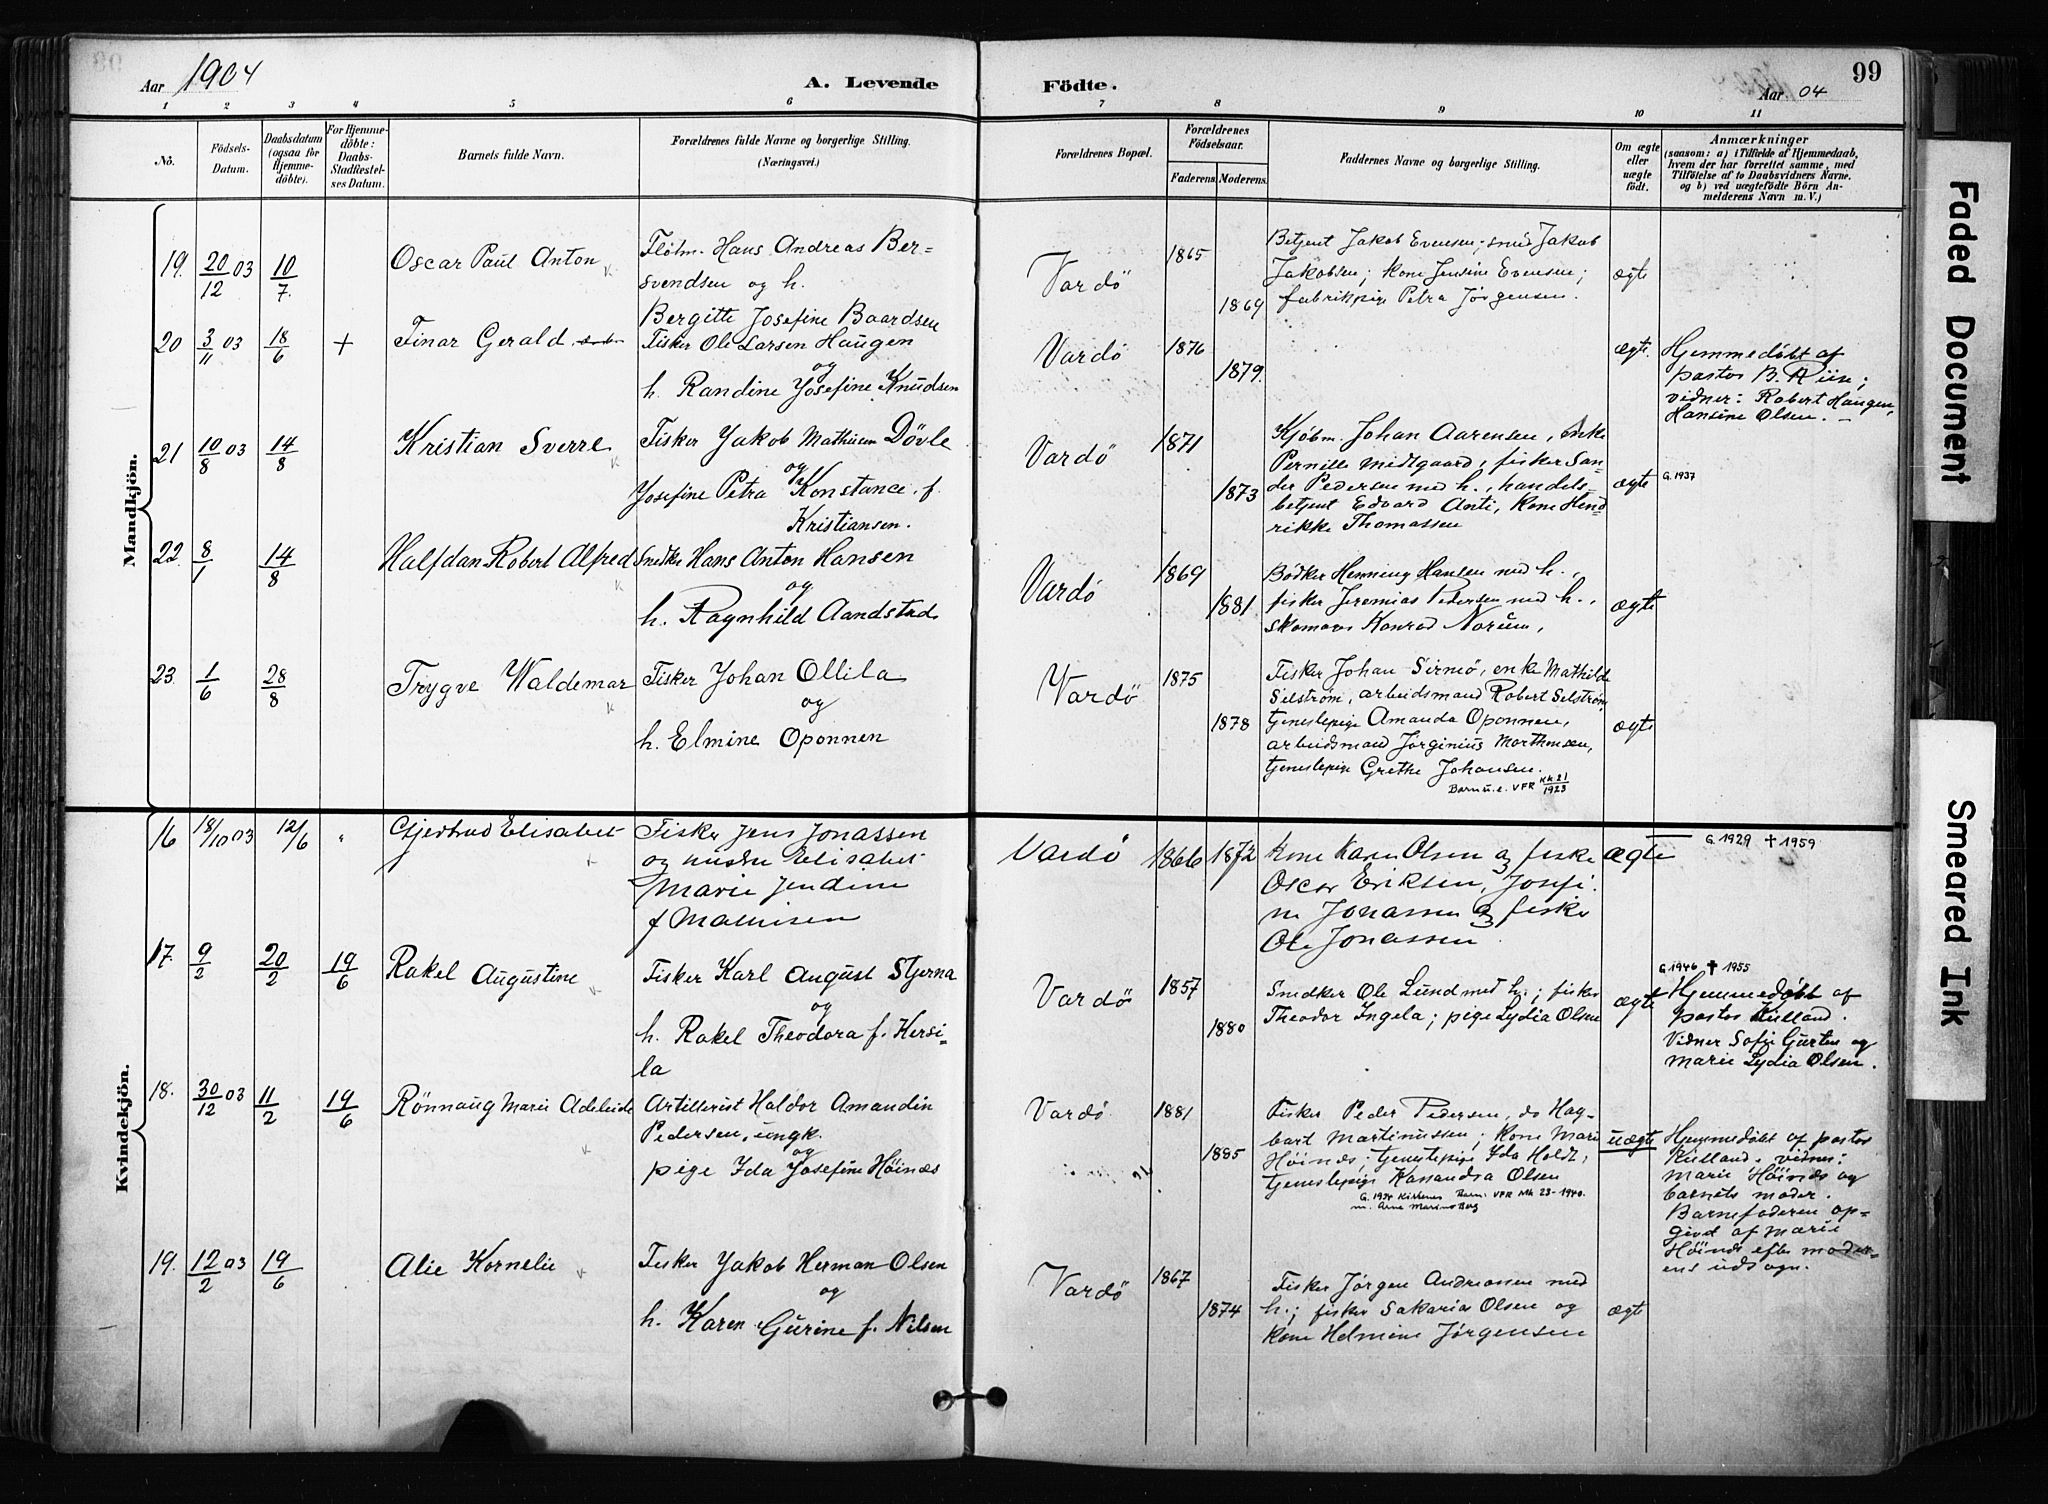 Aar 1904
A. Levende Födte.
99
Aar 04
1 2 3 4 5 6 7 8 9 10 11
No.
Födsels-
Datum.
Daabsdatum
(ogsaa for
Hjemme-
döbte).
For Hjemme-
döbte:
Daabs-
Stadfæstel-
ses Datum.
Barnets fulde Navn.
Forældrenes fulde Navne og borgerlige Stilling.
(Næringsvei.)
Forældrenes Bopæl.
Forældrenes
Födselsaar.
Faderens. Moderens.
Faddernes Navne og borgerlige Stilling.
Om ægte
eller
uægte
födt.
Anmærkninger
(saasom: a) i Tilfælde af Hjemmedaab,
hvem der har forrettet samme, med
Tilföielse af to Daabsvidners Navne.
og b) ved uægtefödte Börn An-
melderens Navn m. V.)
Mandkjön.
19. 20/12 03 10/7.
Oscar Paul Anton
Fløtm. Hans Andreas Ber-
svendsen og h.
Bergitte Josefine Baardsen
Vardö
1865
1869
Betjent Jakob Evensen; smed Jakob
Jakobsen; kone Jensine Evensen;
fabrikpige Petra Jørgensen.
ægte
20 3/11 03 18/6 +
Einar Gerald
Fisker Ole Larsen Haugen
og
h. Randine Josefine Knudsen
Vardö
1876
1879.
ægte.
Hjemmedøbt af
pastor B. Riise;
vidner: Robert Haugen,
Hansine Olsen. —
21 10/8 03 14/8
Kristian Sverre
Fisker Jakob Mathisen Dövle
og
Josefine Petra Konstance f.
Kristiansen.
Vardö
1871
1873
Kjöbm. Johan Aarensen, enke
Pernille Midtgaard, fisker San-
der Pedersen med h., handels
betjent Edvard Anti, kone Hend
rikke Thomassen
ægte
G. 1937
22. 8/1 14/8
Halfdan Robert Alfred
Snedker Hans Anton Hansen
og
h. Ragnhild Aandstad
Vardö
1869
1881.
Bødker Henning Hansen med h.,
fisker Jeremias Pedersen med h.,
skomager Konrad Norum,
ægte
23. 1/6 28/8
Trygve Waldemar
Fisker Johan Ollila
og
h. Elmine Oponnen
Vardö
1875
1878
Fisker Johan Sirniö, enke Mathilde
Selström, arbeidsmand Robert Selström
tjenestepige Amanda Oponnen,
arbeidsmand Jörginius Morthensen,
tjenestepige Grethe Johansen.
Barn u. e. VFR Kk 21/1923
ægte
Kvindekjön.
16 18/10 03 12/6 "
Gjertrud Elisabet
Fisker Jens Jonassen
og hustru Elisabet
Marie Jendine
f Mathisen
Vardö
1866 1872
Kone Karen Olsen og fisker
Oscar Eriksen, Josefi-
ne Jonassen og fisker
Ole Jonassen
ægte
G. 1929 † 1959
17. 9/2 20/2 19/6
Rakel Augustine
Fisker Karl August Stjerna
og
h. Rakel Theodora f. Kersi-
la
Vardö
1857
1880
Snedker Ole Lund med h.; fisker
Theodor Ingela; pige Lydia Olsen
ægte
G. 1946 † 1955
Hjemmedøbt af
pastor Kulland.
Vidner Sofie Gurten og
Marie Lydia Olsen.
18. 30/12 03 11/2 19/6
Rönnaug Marie Adeleide
Artillerist Haldor Amandin
Pedersen, ungk.
og
pige Ida Josefine Höinæs
Vardö
1881
1885
Fisker Peder Pedersen, do Hag-
bart Martinussen; kone Marie
Höinæs; tjenestepige Ida Holdt,
tjenestepige Kassandra Olsen
G. 1934 Kirkenes Barn: VFR Mk 23-1940.
m. Arne Marino Berg
uægte
Hjemmedøbt af pastor
Kulland. vidner:
Marie Höinæs og
barnets moder.
Barnefaderen op-
givet af Marie
Höinæs efter moder-
ens udsagn.
19. 12/2 03 19/6
Alie Kornelie
Fisker Jakob Herman Olsen
og
h. Karen Gurine f. Nilsen
Vardö
1867
1874
Fisker Jørgen Andreassen med
h.; fisker Sakarias Olsen og
kone Helmine Jørgensen
ægte
Faded Document
Smeared Ink